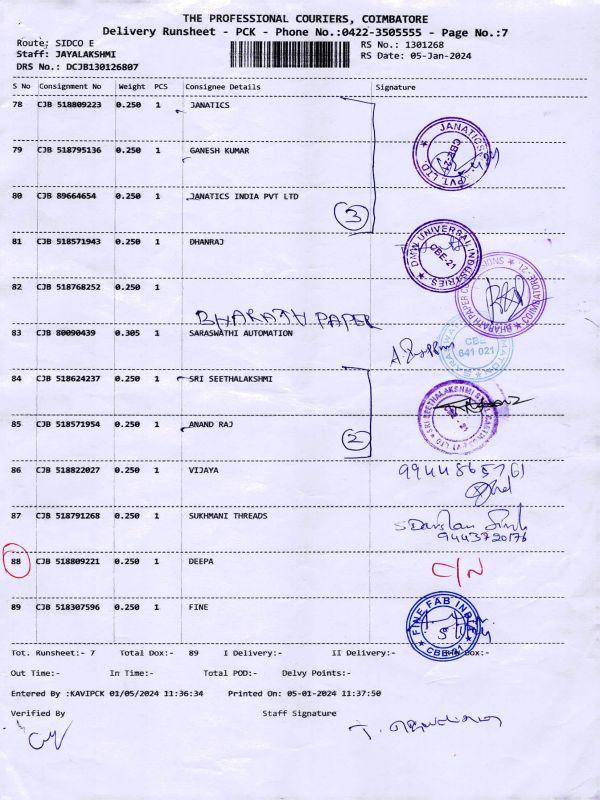 THE PROFESSIONAL COURIERS, COIMBATORE
Delivery Runsheet - PCK - Phone No.:0422-3505555 - Page No.:7
Route: SIDCO E RS No.: 1301268
Staff: JAYALAKSHMI RS Date: 05-Jan-2024
DRS No.: DCJB130126807
S No Consignment No Weight PCS Consignee Details Signature
78 CJB 518809223 0.250 1 JANATICS
JANATICS PVT LTD. CBE-21
79 CJB 518795136 0.250 1 GANESH KUMAR
80 CJB 89664654 0.250 1 JANATICS INDIA PVT LTD
3
81 CJB 518571943 0.250 1 DHANRAJ
DMW UNIVERSAL INDUSTRIES CBE-21
82 CJB 518768252 0.250 1
BHARATH PAPER
BHARATH PAPER COIMBATORE-21
83 CJB 80090439 0.305 1 SARASWATHI AUTOMATION
CBE 641 021
84 CJB 518624237 0.250 1 SRI SEETHALAKSHMI
SRI SEETHALAKSHMI
85 CJB 518571954 0.250 1 ANAND RAJ
2
86 CJB 518822027 0.250 1 VIJAYA
9944865761
87 CJB 518791268 0.250 1 SUKHMANI THREADS
S Darshan Singh
9443720176
88 CJB 518809221 0.250 1 DEEPA C/N
89 CJB 518307596 0.250 1 FINE
FINE FAB INDIA CBE-21
Tot. Runsheet:- 7 Total Dox:- 89 I Delivery:- II Delivery:- Dox:-
Out Time:- In Time:- Total POD:- Delvy Points:-
Entered By :KAVIPCK 01/05/2024 11:36:34 Printed On: 05-01-2024 11:37:50
Verified By Staff Signature